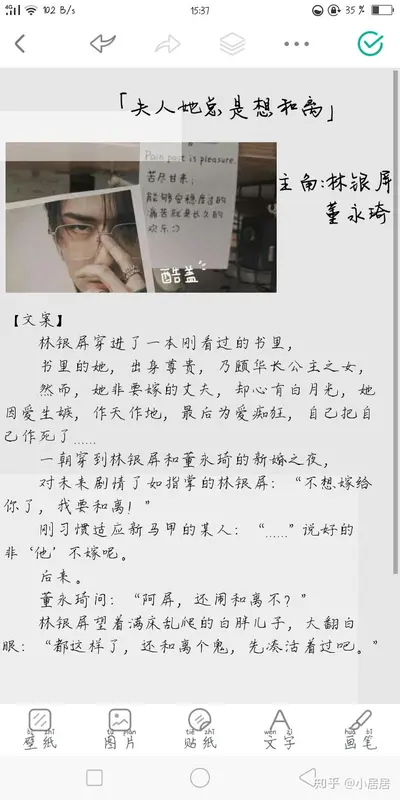 4G 10.2 B/s 15:37 35 %
「夫人她总是想和离」
主角:林银屏
董永琦
Pain past is pleasure.
苦尽甘来;
能够安稳度过的
痛苦就是长久的
欢乐:)
酷盖
【文案】
林银屏穿进了一本刚看过的书里,
书里的她, 出身尊贵, 乃颐华长公主之女,
然而, 她非要嫁的丈夫, 却心有白月光, 她
因爱生嫉, 作天作地, 最后为爱痴狂, 自己把自
己作死了……
一朝穿到林银屏和董永琦的新婚之夜,
对未来剧情了如指掌的林银屏: “不想嫁给
你了, 我要和离! ”
刚习惯适应新马甲的某人: “……”说好的
非‘他’不嫁呢。
后来。
董永琦问: “阿屏, 还闹和离不? ”
林银屏望着满床乱爬的白胖儿子, 大翻白
眼: “都这样了, 还和离个鬼, 先凑活着过吧。”
bì zhǐ tú piàn tiē zhǐ wén zì huà bǐ
壁纸 图片 贴纸 文字 画笔
知乎 @小居居